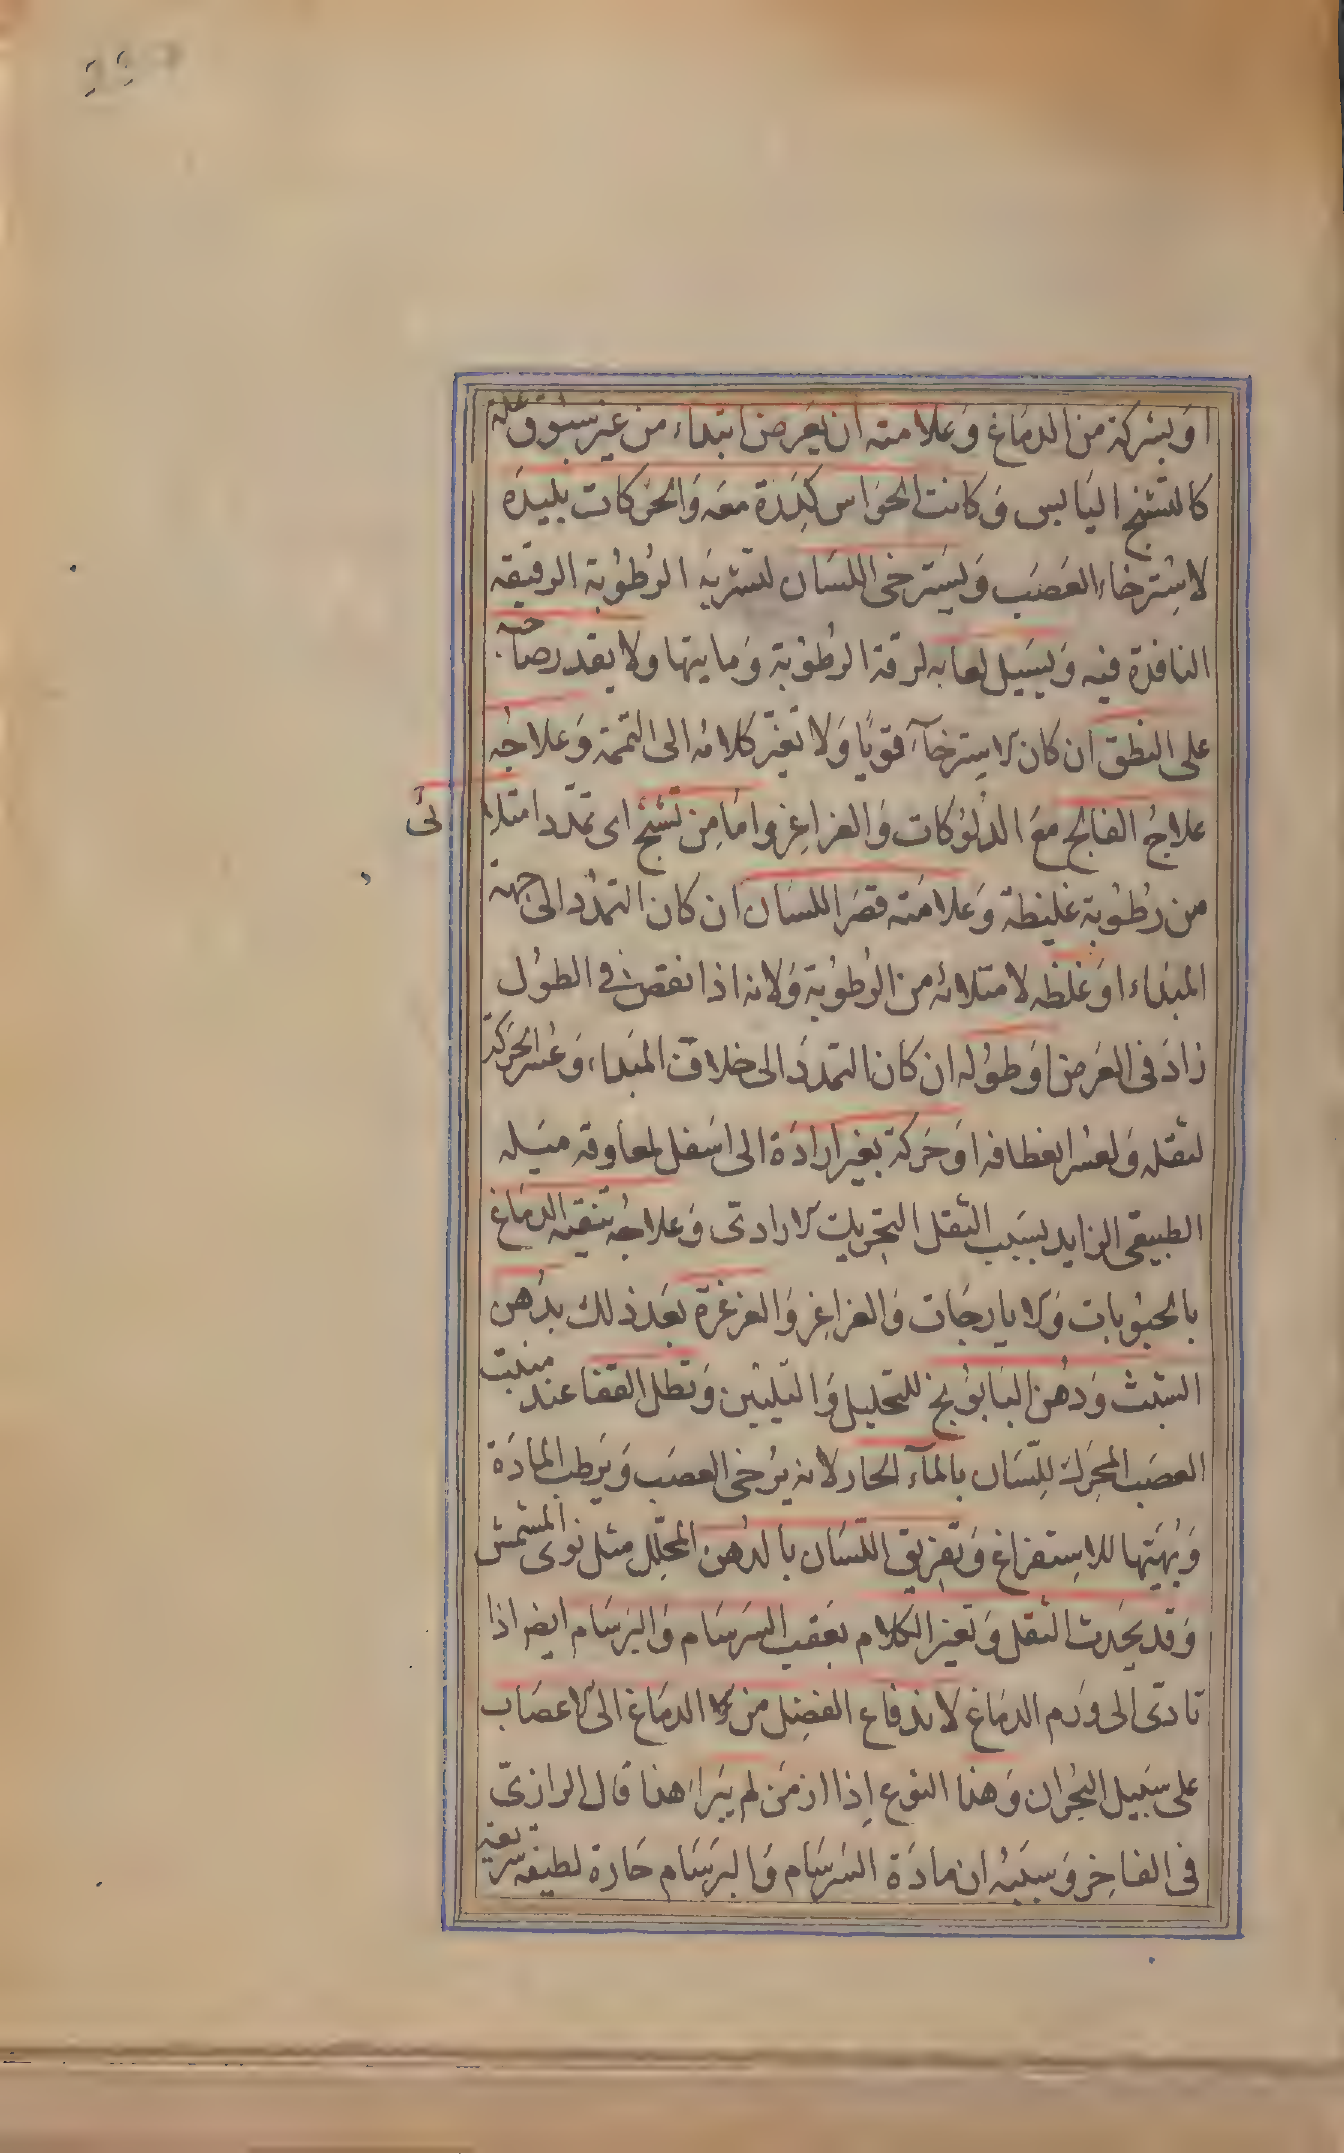 او بشركة من الدماغ وعلامته ان يعرض ابتداء من غير سبوق علة
كالتشنج اليابس وكانت الحواس كدرة معه والحركات بليدة
لاسترخاء العصب ويسترخى اللسان لتشربه الرطوبة الرقيقه
النافذة فيه ويسيل لعابه لرقة الرطوبة ومايتها ولا يقدر صاحبه
على النطق ان كان الاسترخآء قويا ولا تغير كلامه الى التمتمة وعلاجه
علاج الفالج مع الدلوكات والغراغر واما من تشنج اى تمدد امتلائى
من رطوبة غليظة وعلامته قصر اللسان ان كان التمدد الى جهة
المبداء او غلظه لامتلائه من الرطوبة ولانه اذا نقص فى الطول
زاد فى العرض او طوله ان كان التمدد الى خلاف المبداء وعسر الحركة
لثقله ولعسر انعطافه او حركة بغير ارادة الى اسفل لمعاوقه ميله
الطبيعى الزايد بسبب الثقل التحريك الارادى وعلاجه تنقية الدماغ
بالحبوبات والايارجات والغراغر والغرغرة بعد ذلك بدهن
الشبث ودهن البابونج للتحليل والتليين ونطل القفا عند منبت
العصب المحرك للسان بالمآء الحار لانه يرخى العصب ويرطب المادة
ويهيتها للاستفراغ وتعريق اللسان بالدهن المحلل مثل نوى المشمش
وقد يحدث الثقل وتغير الكلام بعقب السرسام والبرسام ايضا اذا
تادى الى ورم الدماغ لاندفاع الفضل من الدماغ الى الاعصاب
على سبيل البحران وهذا النوع اذا ازمن لم يبرا هذا قال الرازى
فى الفاخر وسببه ان مادة السرسام والبرسام حارة لطيفه سريعة